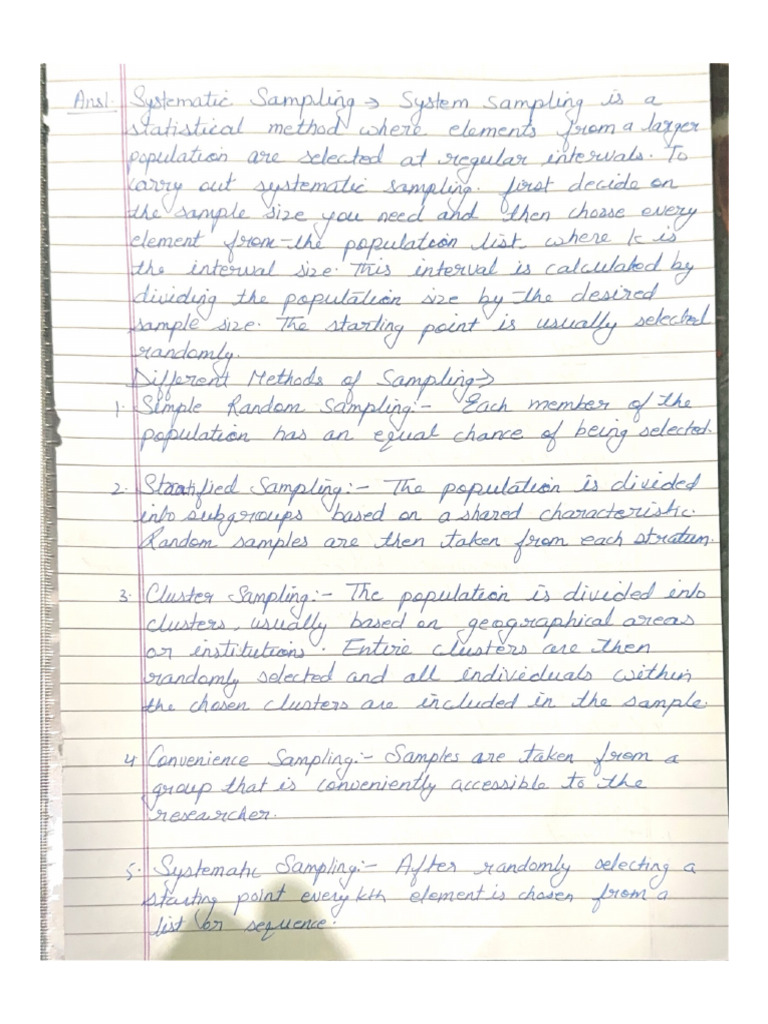 Ans1. Systematic Sampling → System sampling is a
statistical method where elements from a larger
population are selected at regular intervals. To
carry out systematic sampling. first decide on
the sample size you need and then choose every
element from the population list. where k is
the interval size. This interval is calculated by
dividing the population size by the desired
sample size. The starting point is usually selected
randomly.
Different Methods of Sampling→
1. Simple Random Sampling:- Each member of the
population has an equal chance of being selected.
2. Stratified Sampling:- The population is divided
into subgroups based on a shared characteristic.
Random samples are then taken from each stratum.
3. Cluster Sampling:- The population is divided into
clusters, usually based on geographical areas
or institutions. Entire clusters are then
randomly selected and all individuals within
the chosen clusters are included in the sample.
4 Convenience Sampling:- Samples are taken from a
group that is conveniently accessible to the
researcher.
5. Systematic Sampling:- After randomly selecting a
starting point every kth element is chosen from a
list or sequence.